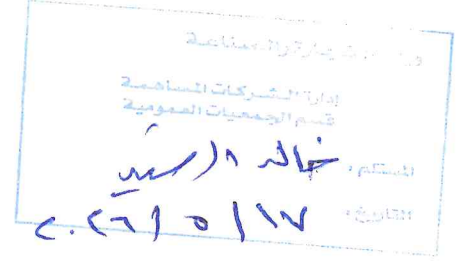 وزارة التجارة والصناعة
إدارة الشركات المساهمة
قسم الجمعيات العمومية
المستلم : خالد الرشيد
التاريخ : ٢٠٢٦/٥/١٧